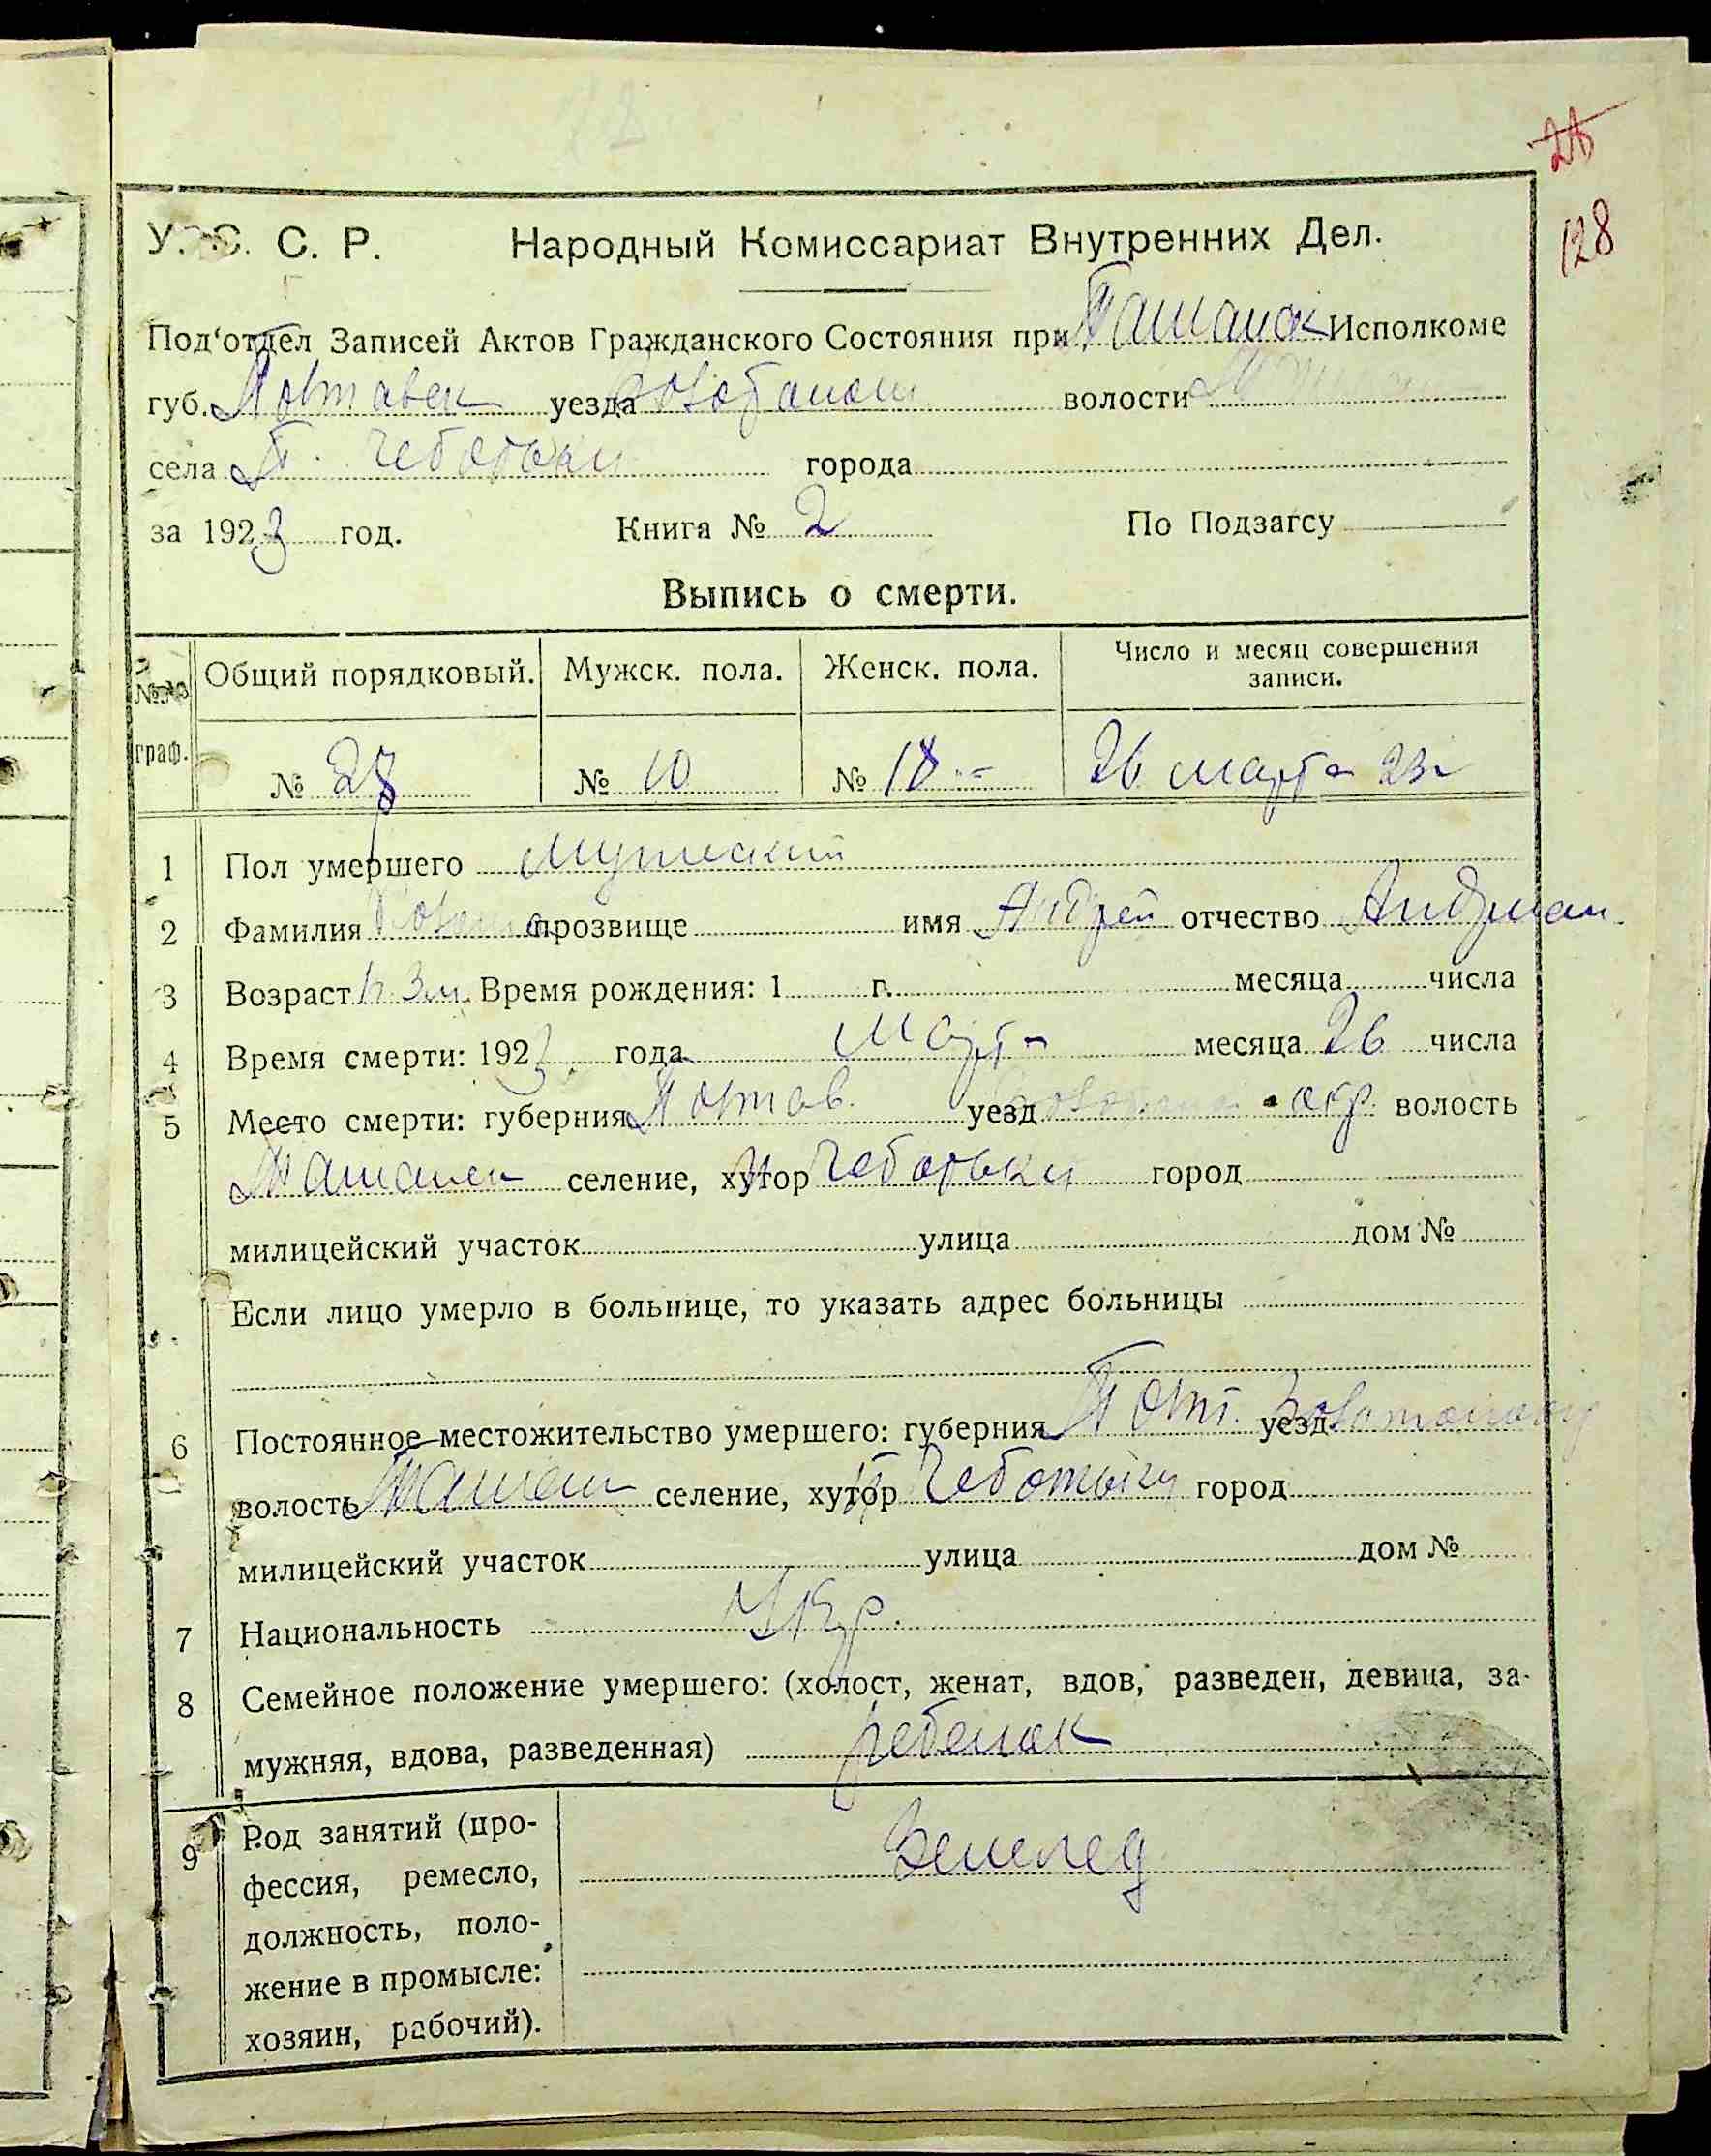 28
128
У. С. С. Р. Народный Комиссариат Внутренних Дел.
Под'отдел Записей Актов Гражданского Состояния при Ташанск Исполкоме
губ. Полтавск уезда волости
села города
за 1923 год. Книга № 2 По Подзагсу
Выпись о смерти.
№№ граф. Общий порядковый. Мужск. пола. Женск. пола. Число и месяц совершения записи.
№ 28 № 10 № 18 26 марта 23г
1 Пол умершего Мужский
2 Фамилия прозвище имя Андрей отчество
3 Возраст 3 м. Время рождения: 1 г. месяца числа
4 Время смерти: 1923 года Марта месяца 26 числа
5 Место смерти: губерния Полтав. уезд окр. волость
Ташанск селение, хутор Чеботьки город
милицейский участок улица дом №
Если лицо умерло в больнице, то указать адрес больницы
6 Постоянное местожительство умершего: губерния Полт. уезд
волость Ташан селение, хутор город
милицейский участок улица дом №
7 Национальность Укр.
8 Семейное положение умершего: (холост, женат, вдов, разведен, девица, за-
мужняя, вдова, разведенная) ребенак
9 Род занятий (про-
фессия, ремесло,
должность, поло-
жение в промысле:
хозяин, рабочий).
Земелед